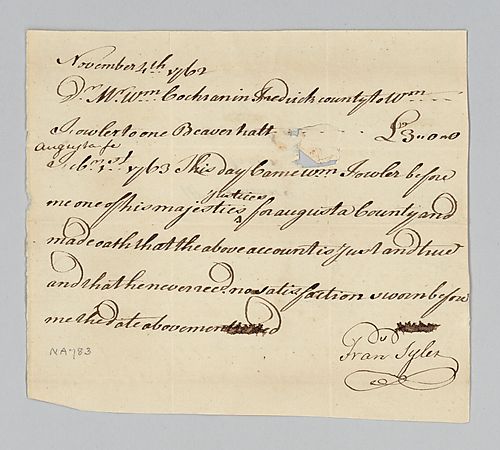 November 4th 1762
Dr. Mr. Wm Cochran in Fredrick county to Wm
Fowler to one Beaver hatt £3"0"0
augusta fe
Feb. 1st 1763 This day Came Wm Fowler before
Justices
me one of his majesties for augusta County and
made oath that the above account is Just and true
and that he never recd. no satisfaction sworn before
me the date above mentioned
Fran Tyler
NA783